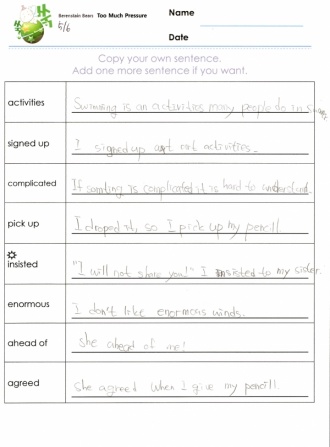 Berenstain Bears Too Much Pressure
Name
5/6
Date
Copy your own sentence.
Add one more sentence if you want.
activities
Swimming is an activities many people do in
signed up
I signed up art activities.
complicated
If somting is complicated it is hard to understand.
pick up
I droped it, so I pick up my pencil.
insisted
"I will not share you!" I insisted to my sister.
enormous
I don't like enormous winds.
ahead of
She ahead of me!
agreed
She agreed when I give my pencil.